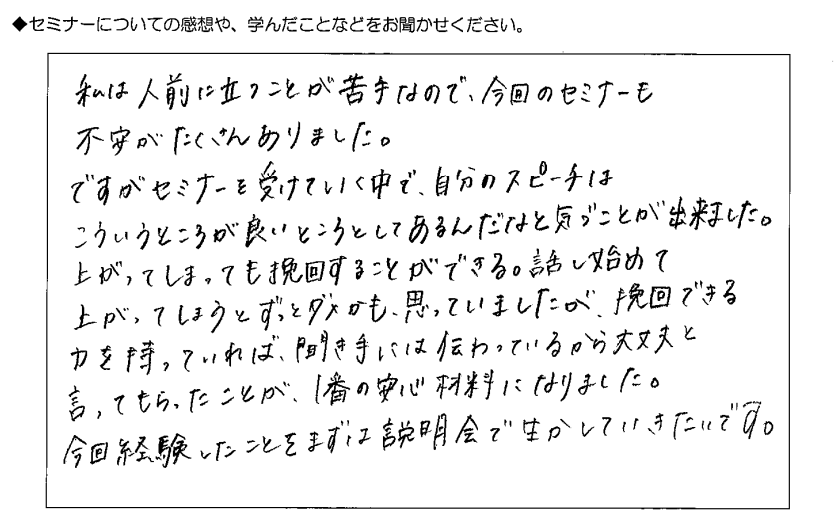 ◆セミナーについての感想や、学んだことなどをお聞かせください。
私は人前に立つことが苦手なので、今回のセミナーも
不安がたくさんありました。
ですがセミナーを受けていく中で、自分のスピーチは
こういうところが良いところとしてあるんだなと気づことが出来ました。
上がってしまっても挽回することができる。話し始めて
上がってしまうとずっとダメかも、思っていましたが、挽回できる
力を持っていれば、聞き手には伝わっているから大丈夫と
言ってもらったことが、1番の安心材料になりました。
今回経験したことをまずは説明会で生かしていきたいです。